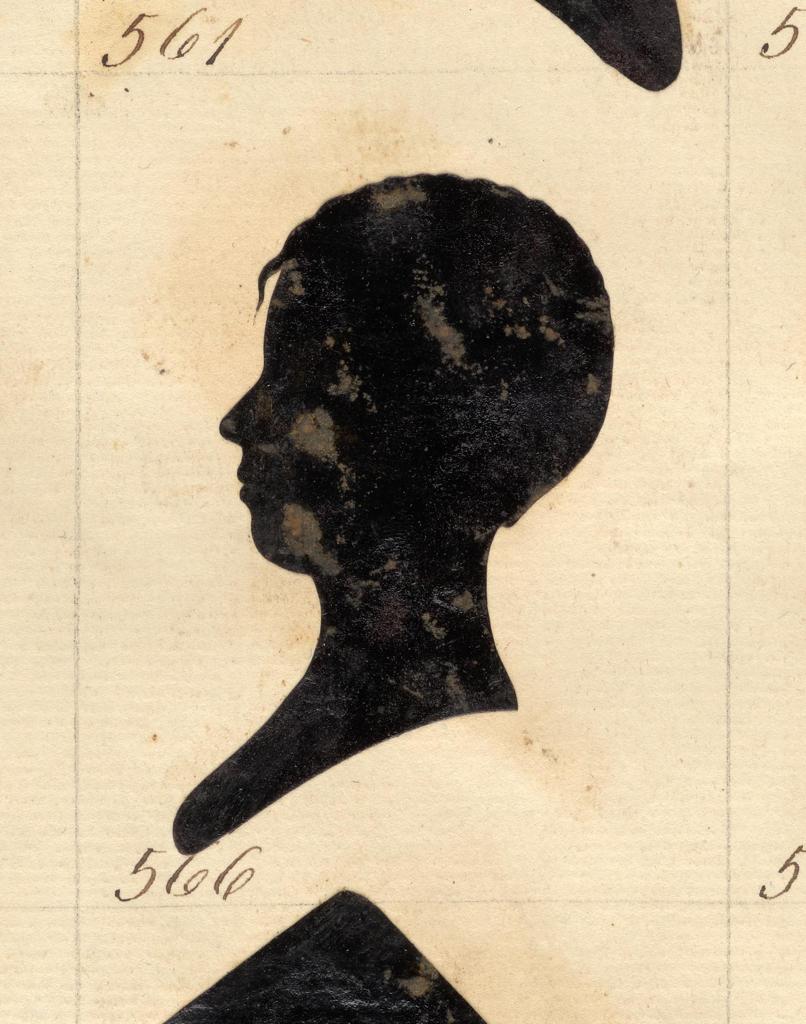 561
5
566
5